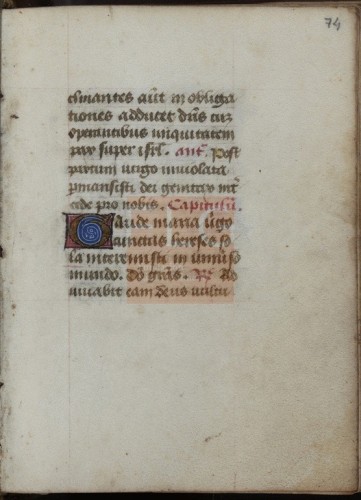 74
clinantes aūt in obliga
tiones adducet dn̄s cuꝫ
operantibus iniquitatem
pax super isrl̄. ant̄. Post
partum virgo inuiolata
ꝑmansisti dei genitrix int̄
cede pro nobis. Capitulū.
Gaude maria v̄go
cunctas hereses so
la interemisti in vniuſo
mundo. Dō grās. R̄ Ad
iuuabit eam deus uultu